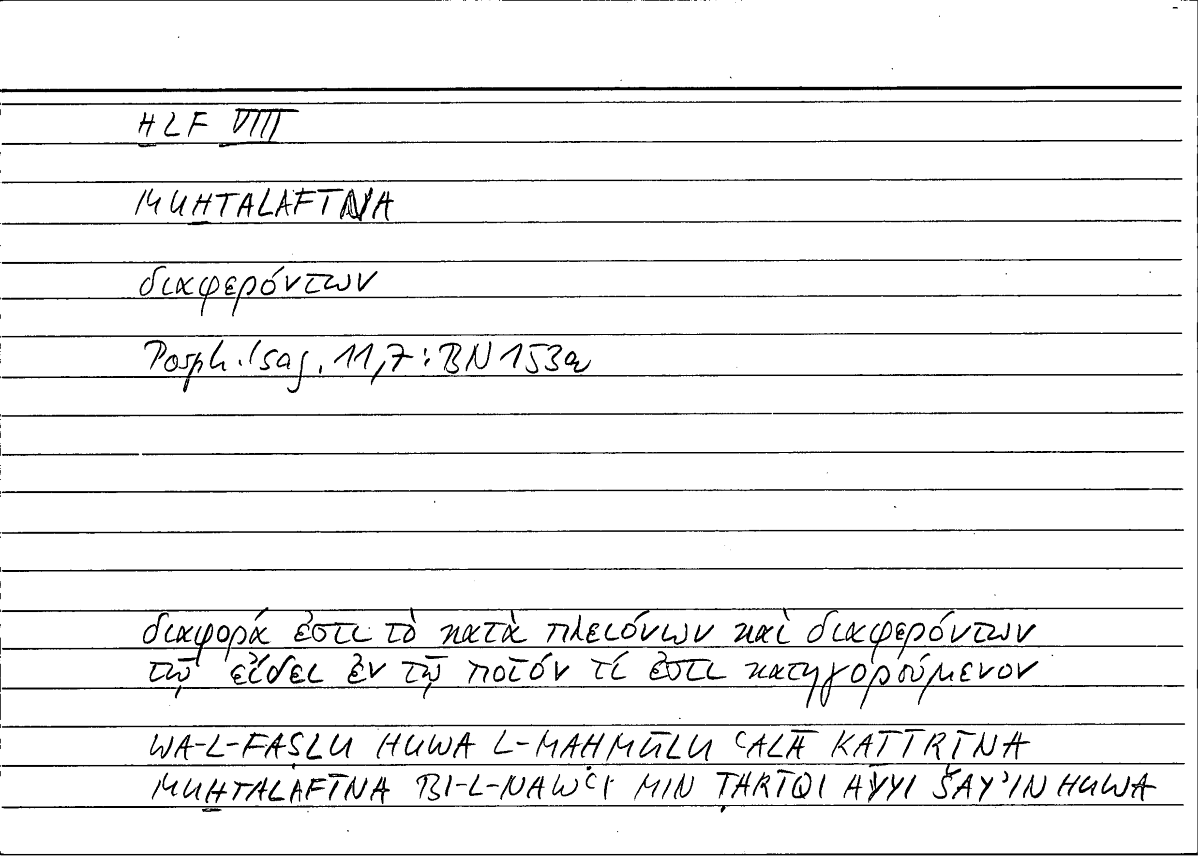 H̱LF VIII
MUH̱TALAFĪNA
διαφερόντων
Porph. Isag. 11,7: BN 153a
διαφορά ἐστι τὸ κατὰ πλειόνων καὶ διαφερόντων
τῷ εἴδει ἐν τῷ ποῖόν τί ἐστι κατηγορούμενον
WA-L-FAṢLU HUWA L-MAḤMŪLU ʿALĀ KAṮĪRĪNA
MUH̱TALAFĪNA BI-L-NAWʿI MIN ṬARĪQI AYYI ŠAYʾIN HUWA